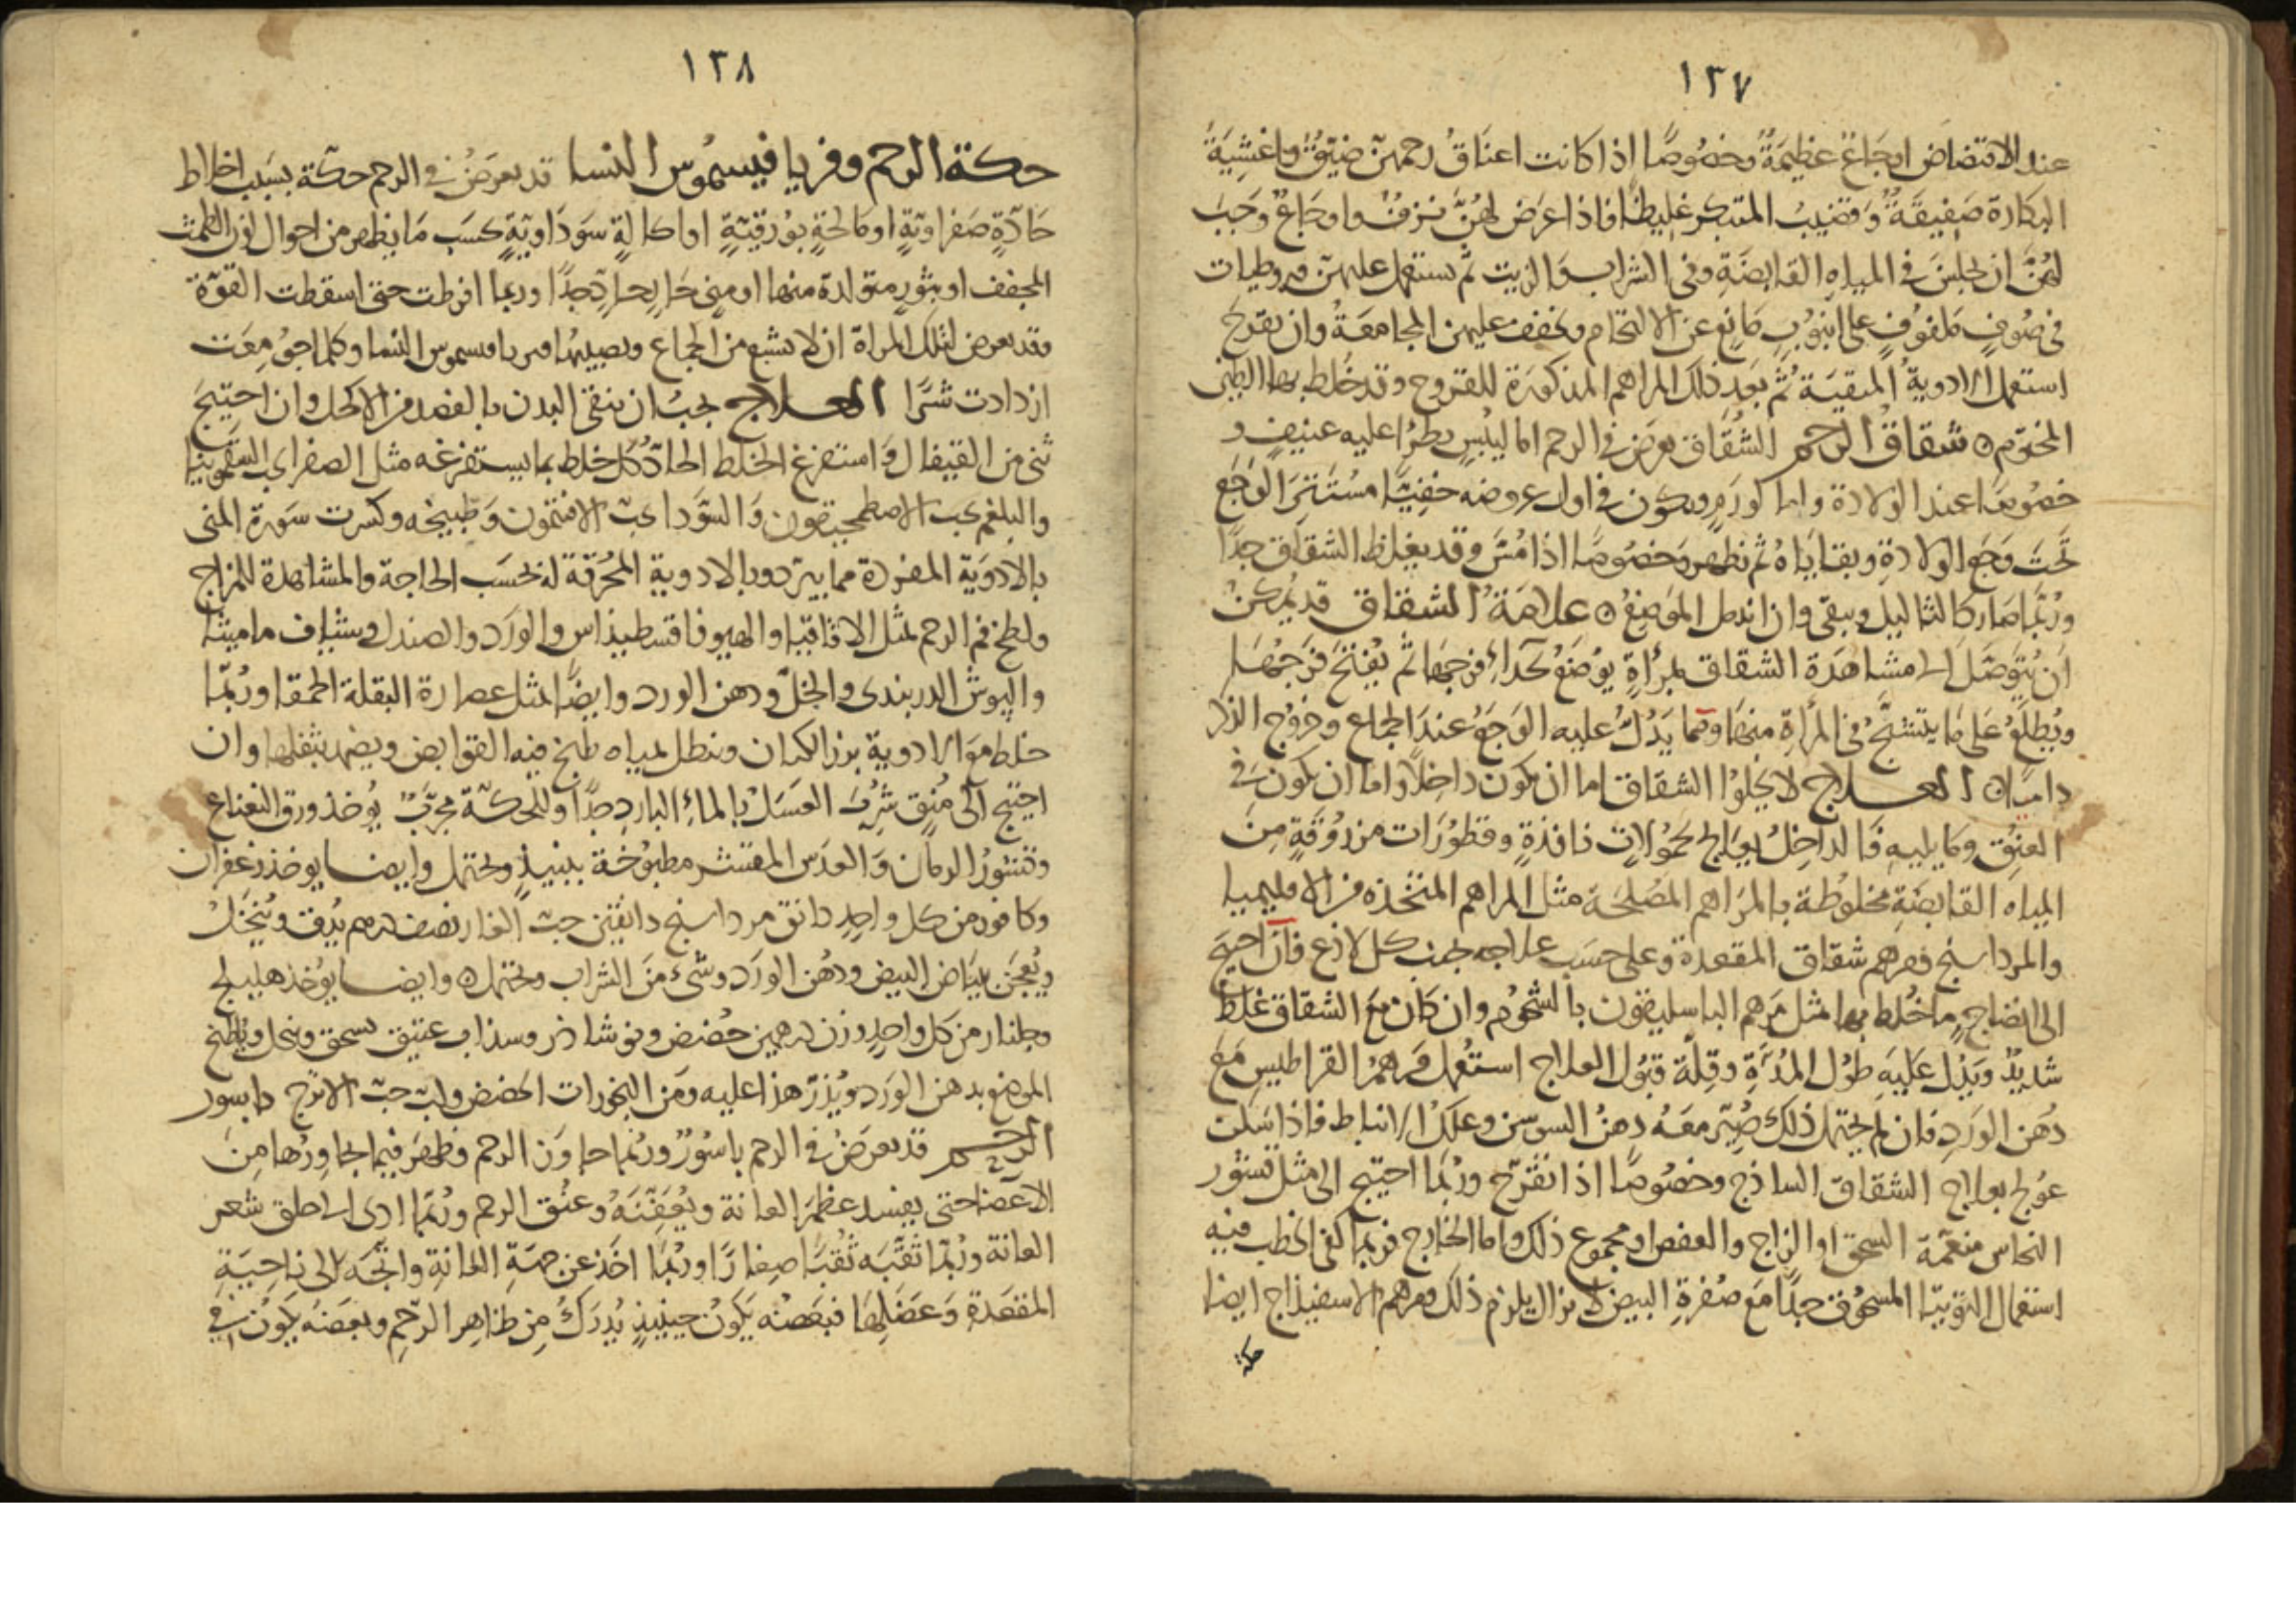 ١٣٧
عند الافتضاض اوجاعٌ عظيمَةٌ وخصُوصًا اذا كانت اعناقُ رحمهنّ ضيّقةً واغشِيَةُ
البكارة صَفِيقَةً وَقضيبُ المتبكر غليظًا فاذا عرَض لهُنَّ نزفٌ واوجاعٌ وَجَبَ
لهُنَّ ان يجلسْنَ في المياهِ القابضَةِ وفي الشراب وَالزيت ثم يستعمل عليهنّ قيروطيات
في صُوفٍ مَلفوُفٍ على انبوُبٍ مَانعٍ عن الالتحام ويخفف عليهن المجامعَةُ وان تقرح
استعمل الادويةُ المنقيَة ثُمَّ بعَد ذلك المراهم المذكورَة للقروح وقد خُلط بها الطين
المختوم ن شقاقُ الرحم الشُقَاق يعرَض في الرحم اما ليُبْسٍ يطرُا عليه عنيفٍ و
خصُوصًا عند الولادة واما لورَمٍ ويكون في اول عروضه خفيًّا مسْتَتِرَ الوَجَع
تحتَ وَجَع الولادةِ وبقايَاهُ ثم يظهر وَخصُوصًا اذا مُسَّ وقد يغلظ الشقاق جدًا
ورُبَّما صَار كالثاليل ويبقى وان اندمل الموَضِعُ ن عَلامَةُ الشقاق قد يُمْكنُ
اَن يُتوَصَّلَ الى مشاهَدَة الشقاق بمِرأةٍ يوُضَعُ بحذاءِ فرجِهَا ثم يُفتح فرجُهَا
ويُطلَعُ عَلى مَا يتشبَّحُ في المرأةِ منهَا ومما يَدُلُّ عليه الوَجَعُ عندَ الجماع وخروُج الذكر
داميًا ن العـــلاج لا يخلوُا الشقاق اما ان يكون داخِلًا واما ان يكون في
العنُق وما يليهِ فَالداخلُ يعَالج بحمُولاتٍ نافذةٍ وقطوُرَات مزرُوقَةٍ مِنَ
المياه القابضَةِ مخلوُطة بالمرَاهم المصُلحَة مثل المراهم المتخذة من الاقليميا
والمرداسنج ومَرهم شقاق المقعدة وعلى حسَب علاجه يجنب كل لاذع فان احتيج
الى انضاجٍ مَا خُلط بها مثل مَرهم الباسليقون بالشحُوم وان كَان معَ الشقاق غلظٌ
شديدٌ وَيَدُل عَليه طوُل المُدَّةِ وقِلّة قبُول العلاج استُعمل مَرهمُ القراطيسِ مَعَ
دُهن الورَدِ فان لم يحتمل ذلك صُيّر معَهُ دهنُ السوسن وعلكُ الانباط فاذا سَكن
عُولج بعلاج الشقاق الساذج وخصُوصًا اذا تقرّح ورُبَما احتيج الى مثل قشوُر
النحاس منعَمّة السحق او الزاج والعفص او مجموع ذلك واما الخارج فربما كفى الخطب فيه
استعمال التوتيَا المسحُوق جدًّا معَ صُفرةِ البيض لا يزال يلزم ذلك ومرهم الاسفيذاج ايضا
حكة
١٣٨
حكة الرحم وفريافيسموُس النسا قد يعرضُ في الرحم حكّة بسَبب اخلاط
حَادّةٍ صَفراويّةٍ او مَالحةٍ بوُرقيّةٍ او اكالةٍ سَودَاويّةٍ بحسَب مَا يظهر من احوال لون الطمث
المجفف او بثوُرٍ متولدة منها او مِنيٍ حَارٍ يحارِ جدًّا وربما افرطت حتى اسقطت القوّة
وقد يعرض لتلك المراة ان لا يشبع من الجماع ويصيبها فريافسيموس النسا وكلما جوُمِعَت
ازدادت شرًّا العـــلاج يجبُ ان ينقى البدن بالفصد من الاكحل وان احتيجَ
ثنى من القيفال وَاستفرغ الخلط الحادّ كل خلط بما يستفرغه مثل الصفرا بحب السقمونيا
والبلغم بحب الاصطمحيقون وَالسّودَا بحبّ الافتمون وَطبيخه وكسرت سَورة المنى
بالادوَيّة المفردة مما يبرّد وبالادوية المحُرّقة له بحسَب الحاجة والمشاهدة للمزاج
ولطخ فم الرحم بمثل الاقاقيا والهيوفاقسطيذاس والورَد والصندل وشياف ماميثا
والبوش الدربندى والخلّ ودهن الورد وايضًا بمثل عصارة البقلة الحمقا ورُبّما
خلط معَ الادوية بزر الكتان وينطل بمياه طبخ فيه القوابض ويضمد بثفلها وان
احتيج الى مُنقٍ شُربَ العسَلُ بالماءِ الباردِ جدًّا وللحكّة مجرّبٌ يوُخذ ورق النعناع
وقشوُر الرمان وَالعدَس المقشر مطبوُخة بنبيذٍ ويحتمل وايضـا يوخذ زعفران
وكافور من كل واحدٍ دانق مرداسنج دانقين حبّ الغار نصف درهم يُدق ويُنخَل
ويُعجَن ببيَاض البيض ودهُن الورَد وشئ منَ الشراب ويحتمل ن وايضـا يوُخذ هليلج
وجلنار من كل واحدٍ وزن درهمين حُضض ونوشادر وسذاب عتيق يسحق وينحل ويُلطخ
الموضع بدهن الورَد ويُذرّ هذا عليه ومَن البخورات الحضض ولب حبّ الاترج باسور
الرحــم قد يعرَضُ في الرحم باسوُرٌ ورُبما جاوَزَ الرحم وظهرَ فيما يجاوِرُها مِنَ
الاعضَا حتى يفسد عظمَ العانة ويُعفّنَهُ وعنُق الرحم ورُبّما ادى الى حلق شعر
العانة ورُبّما ثقّبَه ثُقبًا صِغارًا ورُبَما اخَذ عن جهَةِ العانةِ واتّجَه الى ناحِيَةِ
المقعَدةِ وَعَضَلِهَا فبعَضهُ يَكوُن حينيذٍ يُدرَكُ مِن ظاهِر الرّحِمِ وبعَضهُ يكوُن في